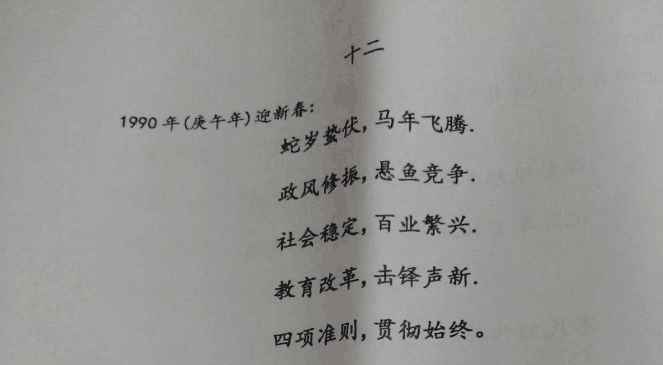 十二
1990年(庚午年)迎新春:
蛇岁蛰伏,马年飞腾.
政风修振,悬鱼竞争.
社会稳定,百业繁兴.
教育改革,击铎声新.
四项准则,贯彻始终。